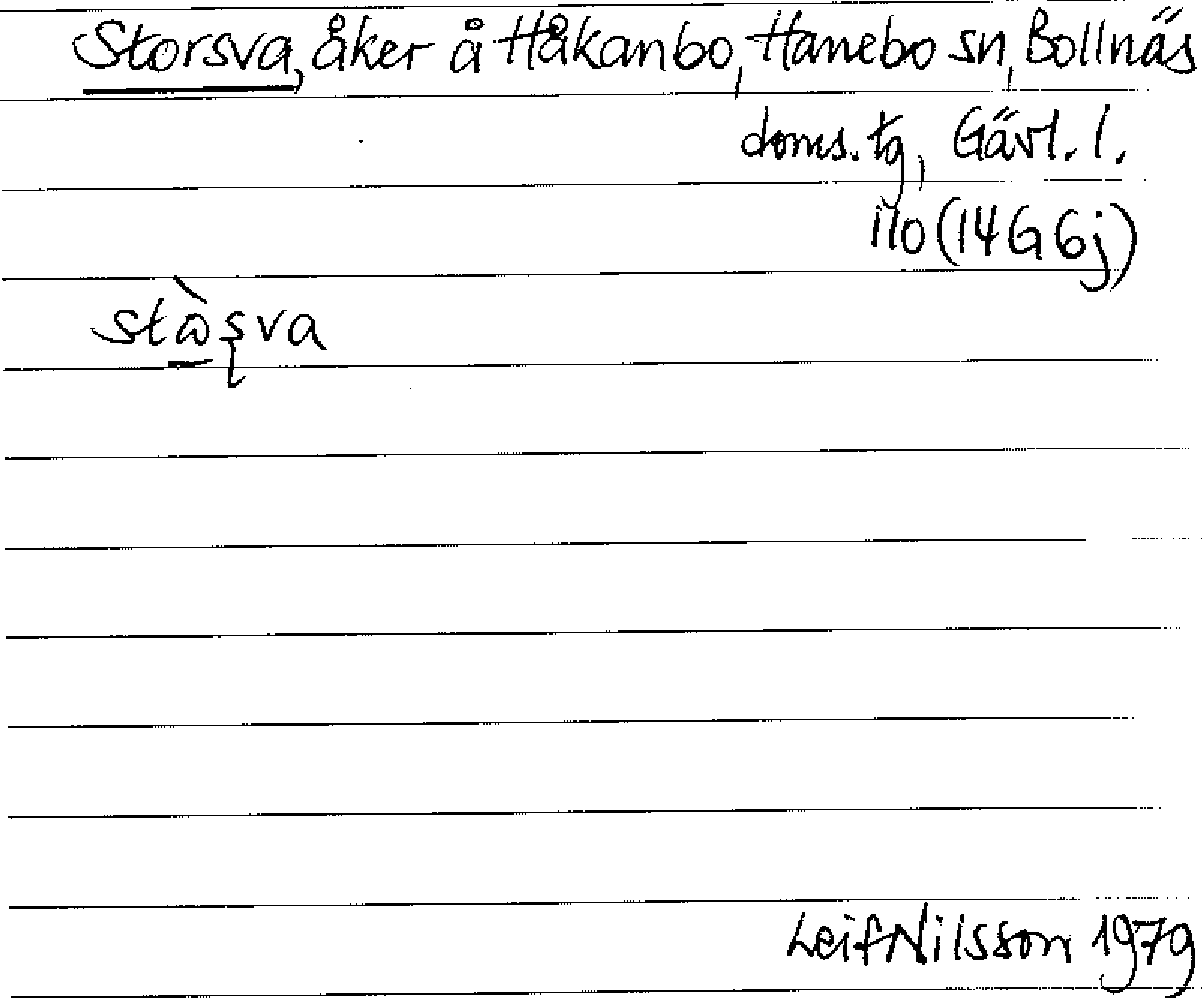 Storsva, åker å Håkanbo, Hanebo sn, Bollnäs
doms. tg, Gävl. l.
110 (14G 6j)
stɷ̀ʂva
Leif Nilsson 1979